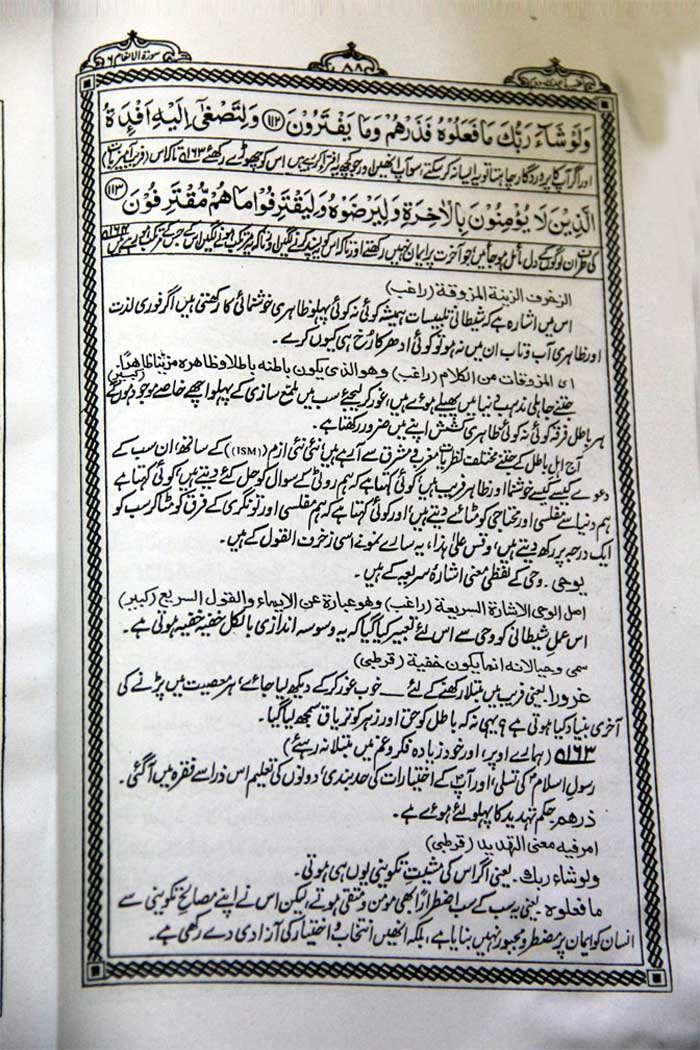 سورۃ الانعام ۶
۸۸
وَلَوْ شَآءَ رَبُّكَ مَا فَعَلُوْهُ فَذَرْهُمْ وَمَا يَفْتَرُوْنَ ﴿۱۱۲﴾ وَلِتَصْغٰٓى اِلَيْهِ اَفْـِٕدَةُ
اور اگر آپ کا پروردگار چاہتا تو یہ ایسا نہ کر سکتے، سو آپ انھیں اور جو کچھ یہ افترا کر رہے ہیں اس کو چھوڑے رکھئے ۵۱۶۳ تاکہ اس (فریب آمیز بات)
الَّذِيْنَ لَا يُؤْمِنُوْنَ بِالْاٰخِرَةِ وَلِيَرْضَوْهُ وَلِيَقْتَرِفُوْا مَا هُمْ مُّقْتَرِفُوْنَ ﴿۱۱۳﴾
کی طرف ان لوگوں کے دل مائل ہو جائیں جو آخرت پر ایمان نہیں رکھتے اور تاکہ اس کو پسند کرنے لگیں اور تاکہ مرتکب ہونے لگیں اس کے جس کے مرتکب ہو رہے ہیں ۵۱۶۴
الزخرف الزينة المزوقة (راغب)
اس میں اشارہ ہے کہ شیطانی تلبیسات ہمیشہ کوئی نہ کوئی پہلو ظاہری خوشنمائی کا رکھتی ہیں اگر فوری لذت
اور ظاہری آب و تاب ان میں نہ ہو تو کوئی ادھر کا رُخ ہی کیوں کرے۔
اى المزوقات من الكلام (راغب) وهو الذى يكون باطنه باطلا وظاهره مزينا ظاهرا۔ (کبیر)
جتنے جاہلی مذہب دنیا میں پھیلے ہوئے ہیں، غور کر لیجئے سب میں ملمع سازی کے پہلو اچھے خاصے موجود ہوں گے
ہر باطل فرقہ کوئی نہ کوئی ظاہری کشش اپنے میں ضرور رکھتا ہے۔
آج اہل باطل کے جتنے مختلف نظریات مغرب و مشرق سے آرہے ہیں نئی نئی ازم (ISM) کے ساتھ، ان سب کے
دعوے کیسے کیسے خوشنما اور ظاہر فریب ہیں، کوئی کہتا ہے کہ ہم روٹی کے سوال کو حل کئے دیتے ہیں، کوئی کہتا ہے
ہم دنیا سے مفلسی اور محتاجی کو مٹائے دیتے ہیں، اور کوئی کہتا ہے کہ ہم مفلسی اور تونگری کے فرق کو مٹا کر سب کو
ایک درجہ پر رکھ دیتے ہیں، وقس علیٰ ہذا، یہ سارے نمونے اسی زخرف القول کے ہیں۔
یوحی۔ وحی کے لفظی معنی اشارۂ سریعہ کے ہیں۔
اصل الوحى الاشارة السريعة (راغب) وهو عبارة عن الايماء والقول السريع (كبير)
اس عملِ شیطانی کو وحی سے اس لئے تعبیر کیا گیا کہ یہ وسوسہ اندازی بالکل خفیہ خفیہ ہوتی ہے۔
سمى وحيا لانه انما يكون خفية (قرطبی)
غرورا یعنی فریب میں مبتلا رکھنے کے لئے ـــ خوب غور کر کے دیکھ لیا جائے، ہر معصیت میں پڑنے کی
آخری بنیاد کیا ہوتی ہے ؟ یہی نہ کہ باطل کو حق اور زہر کو تریاق سمجھ لیا گیا۔
۵۱۶۳ (ہمارے اوپر، اور خود زیادہ فکر و غم میں مبتلا نہ رہئے)
رسولِ اسلام کی تسلی، اور آپ کے اختیارات کی حد بندی، دونوں کی تعلیم اس ذرا سے فقرہ میں آگئی۔
ذرهم حکم تہدید کا پہلو لئے ہوئے ہے۔
امر فيه معنى التهديد (قرطبی)
ولو شاء ربك۔ یعنی اگر اس کی مشیتِ تکوینی یوں ہی ہوتی۔
ما فعلوه یعنی یہ سب کے سب اضطراراً بھی مومن و متقی ہوتے، لیکن اس نے اپنے مصالحِ تکوینی سے
انسان کو ایمان پر مضطر و مجبور نہیں بنایا ہے، بلکہ انھیں انتخاب و اختیار کی آزادی دے رکھی ہے۔